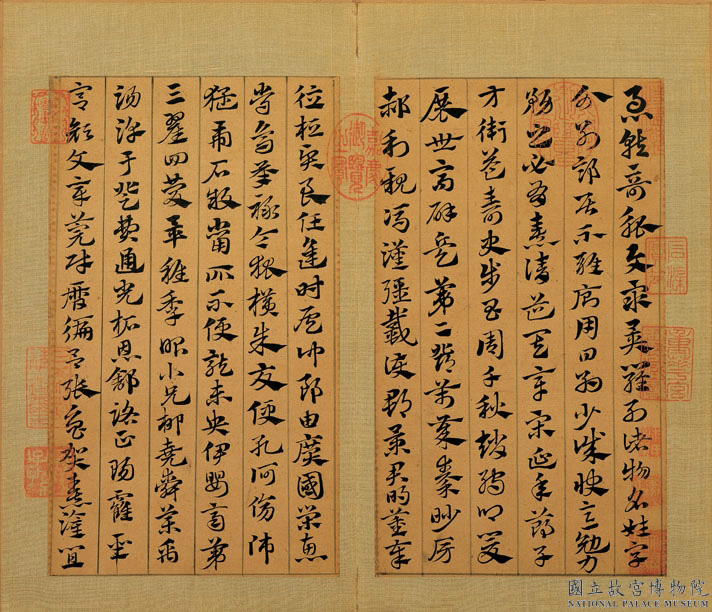 急就奇觚與衆異羅列諸物名姓字
分別部居不雜廁用日約少誠快意勉力
務之必有憙請道其章宋延年鄭子
方衛益壽史步昌周千秋趙孺卿爰
展世高辟兵第二鄧萬歲秦眇房
郝利親馮漢彊戴護郡景君明董奉
德桓賢良任逢時侯仲郎由廣國榮惠
常烏承祿令狐橫朱交便孔何傷師
猛虎石敢當所不侵龍未央伊嬰齊第
三翟回慶畢稚季昭小兄柳堯舜樂禹
湯淳于登費通光柘恩舒路正陽霍聖
宮顏文章莞財歷偏呂張魯賀憙灌宜
國立故宮博物院
NATIONAL PALACE MUSEUM